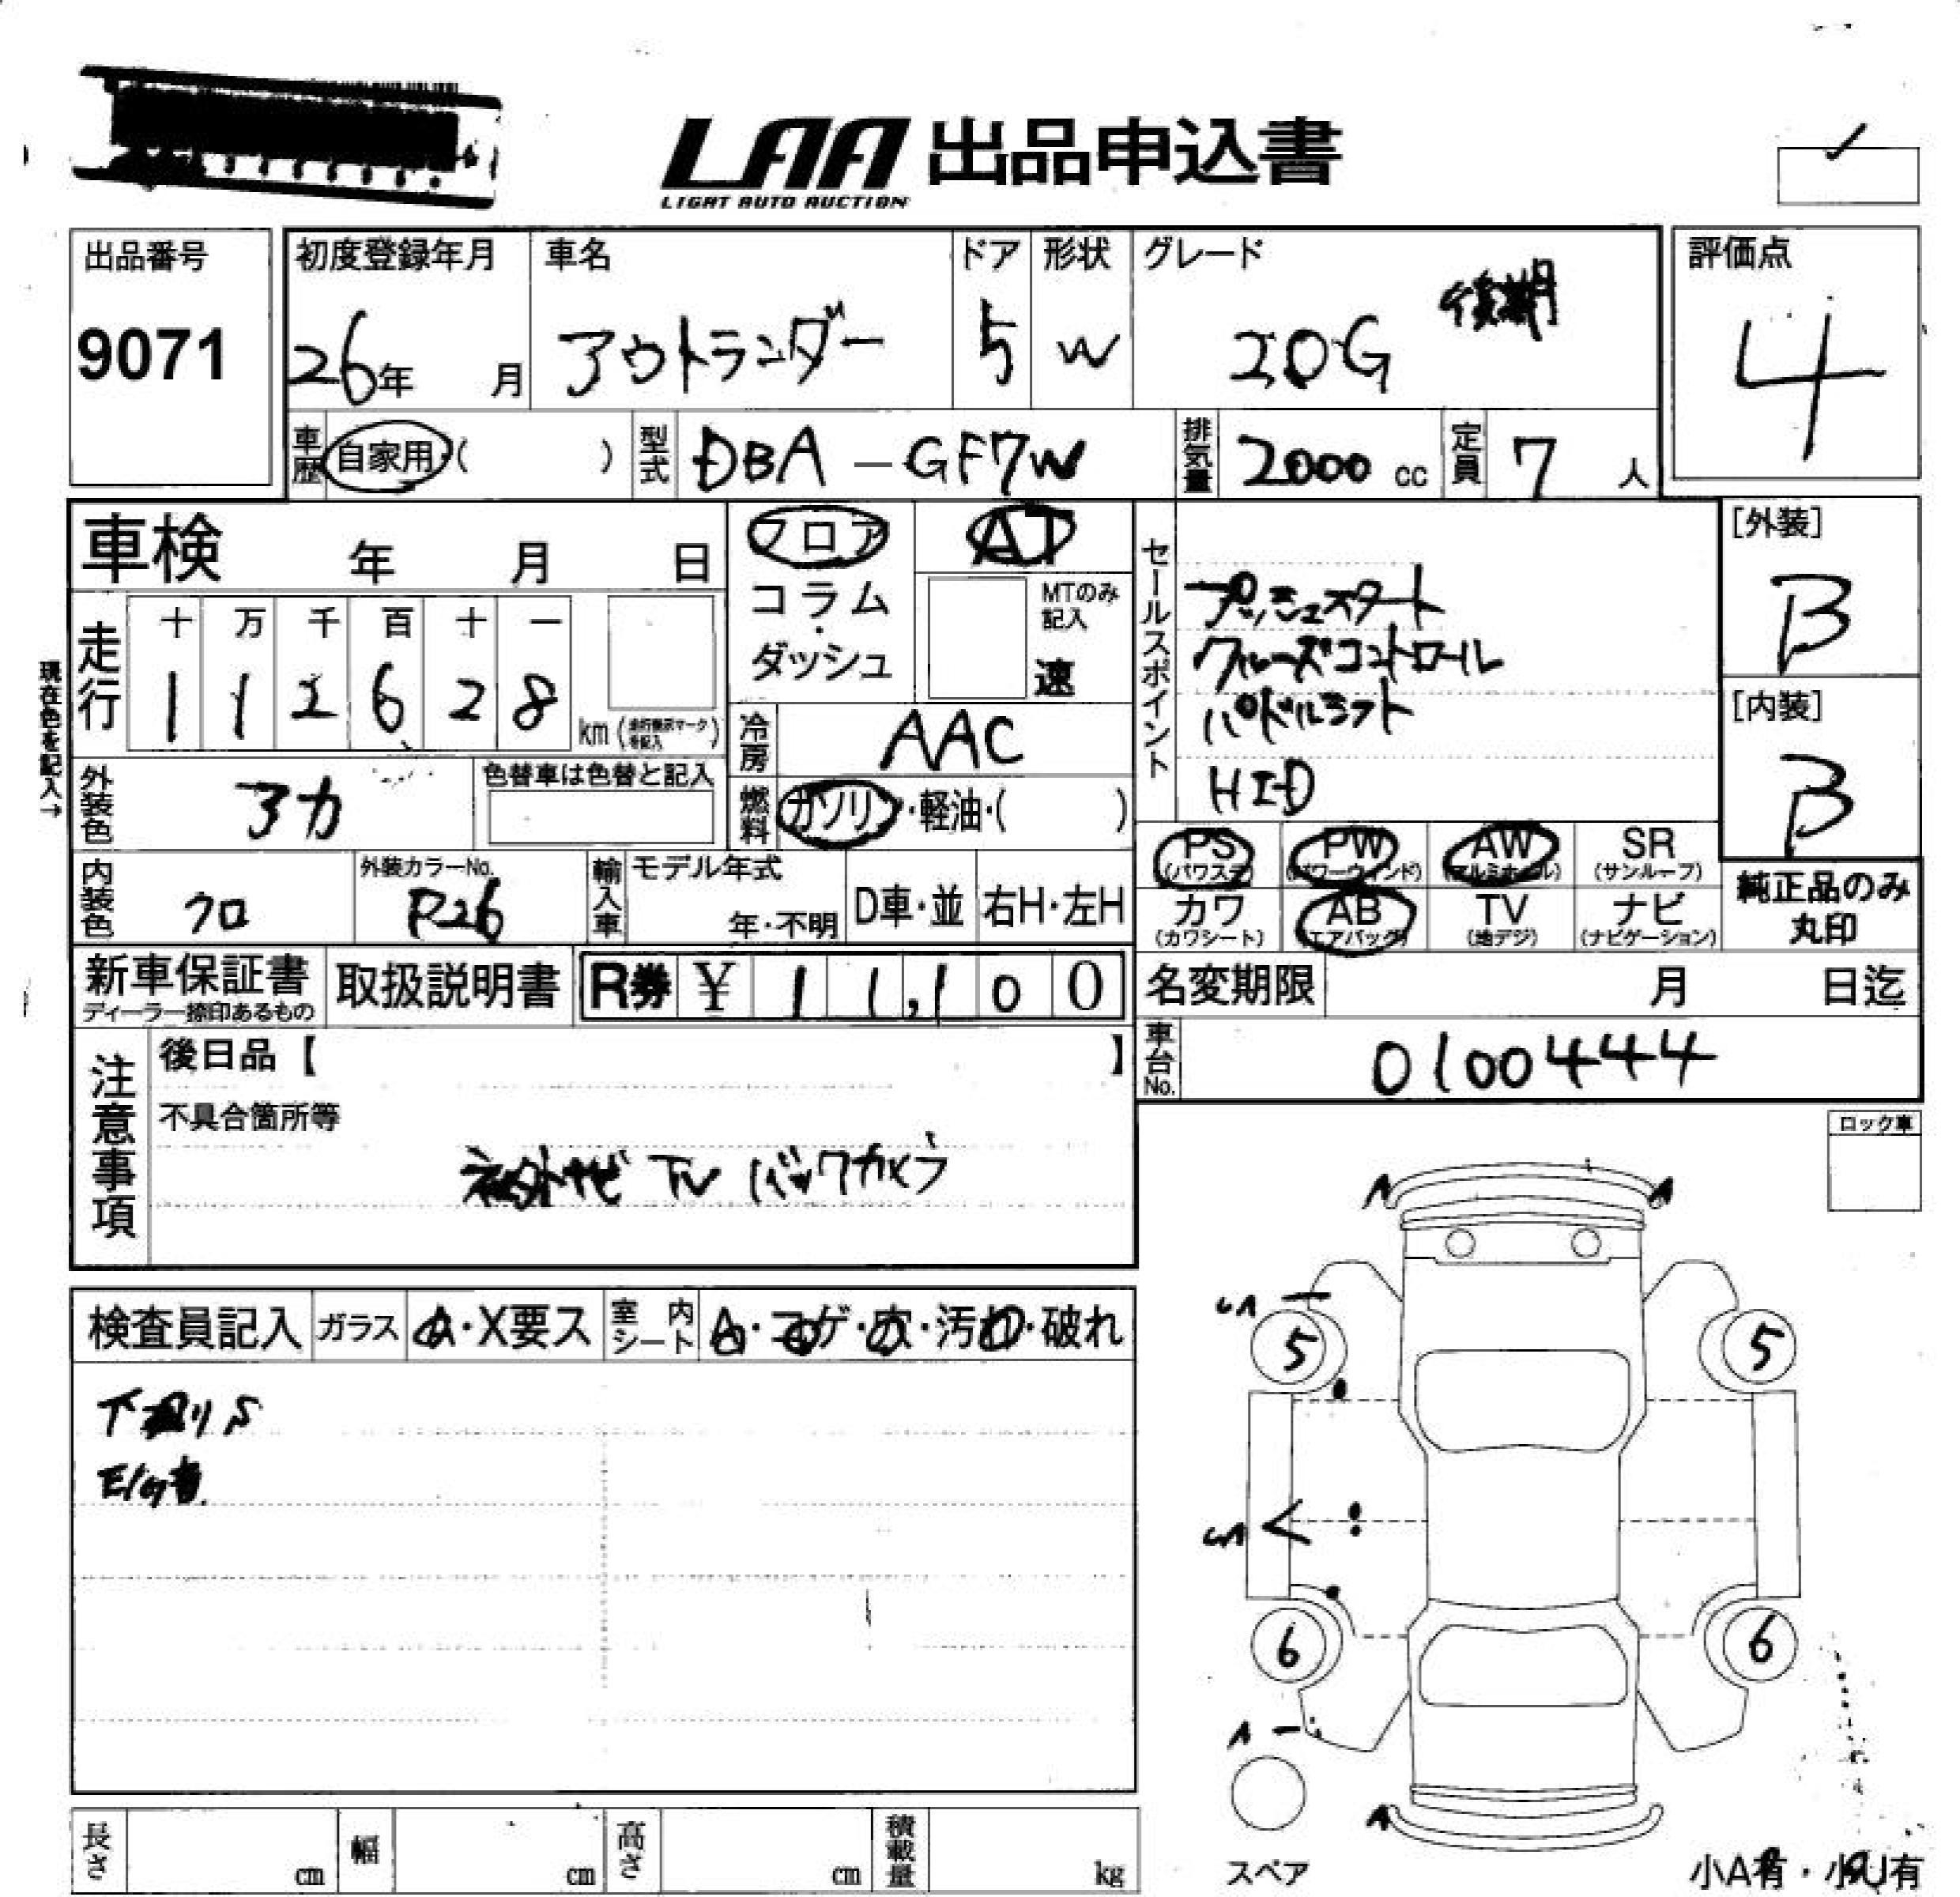 LAA 出品申込書
LIGHT AUTO AUCTION
出品番号
9071
初度登録年月
26年 月
車名
アウトランダー
ドア
5
形状
W
グレード
20G 後期
評価点
4
車歴 自家用・( )
型式 DBA-GF7W
排気量 2000 cc
定員 7 人
車検 年 月 日
現在色を記入→
走行
十 万 千 百 十 一
1 1 2 6 2 8 km
フロア
コラム
・
ダッシュ
AT
MTのみ記入
速
冷房 AAC
燃料 ガソリン・軽油・( )
外装色 アカ
色替車は色替と記入
内装色 クロ
外装カラーNo.
P26
輸入車
モデル年式
年・不明
D車・並
右H・左H
セールスポイント
プッシュスタート
クルーズコントロール
パドルシフト
HID
[外装]
B
[内装]
B
PS (パワステ)
PW (パワーウィンド)
AW (アルミホイール)
SR (サンルーフ)
カワ (カワシート)
AB (エアバッグ)
TV (地デジ)
ナビ (ナビゲーション)
純正品のみ
丸印
新車保証書
ディーラー捺印あるもの
取扱説明書
R券 ¥ 11,100
名変期限 月 日迄
車台No. 0100444
注意事項
後日品【 】
不具合箇所等
社外ナビ TV バックカメラ
ロック車
検査員記入
ガラス
A・X要ス
室内シート
A・コゲ・穴・汚れ・破れ
下廻りS
A
A
5
5
6
6
A
スペア
長さ cm
幅 cm
高さ cm
積載量 kg
小A有・小U有